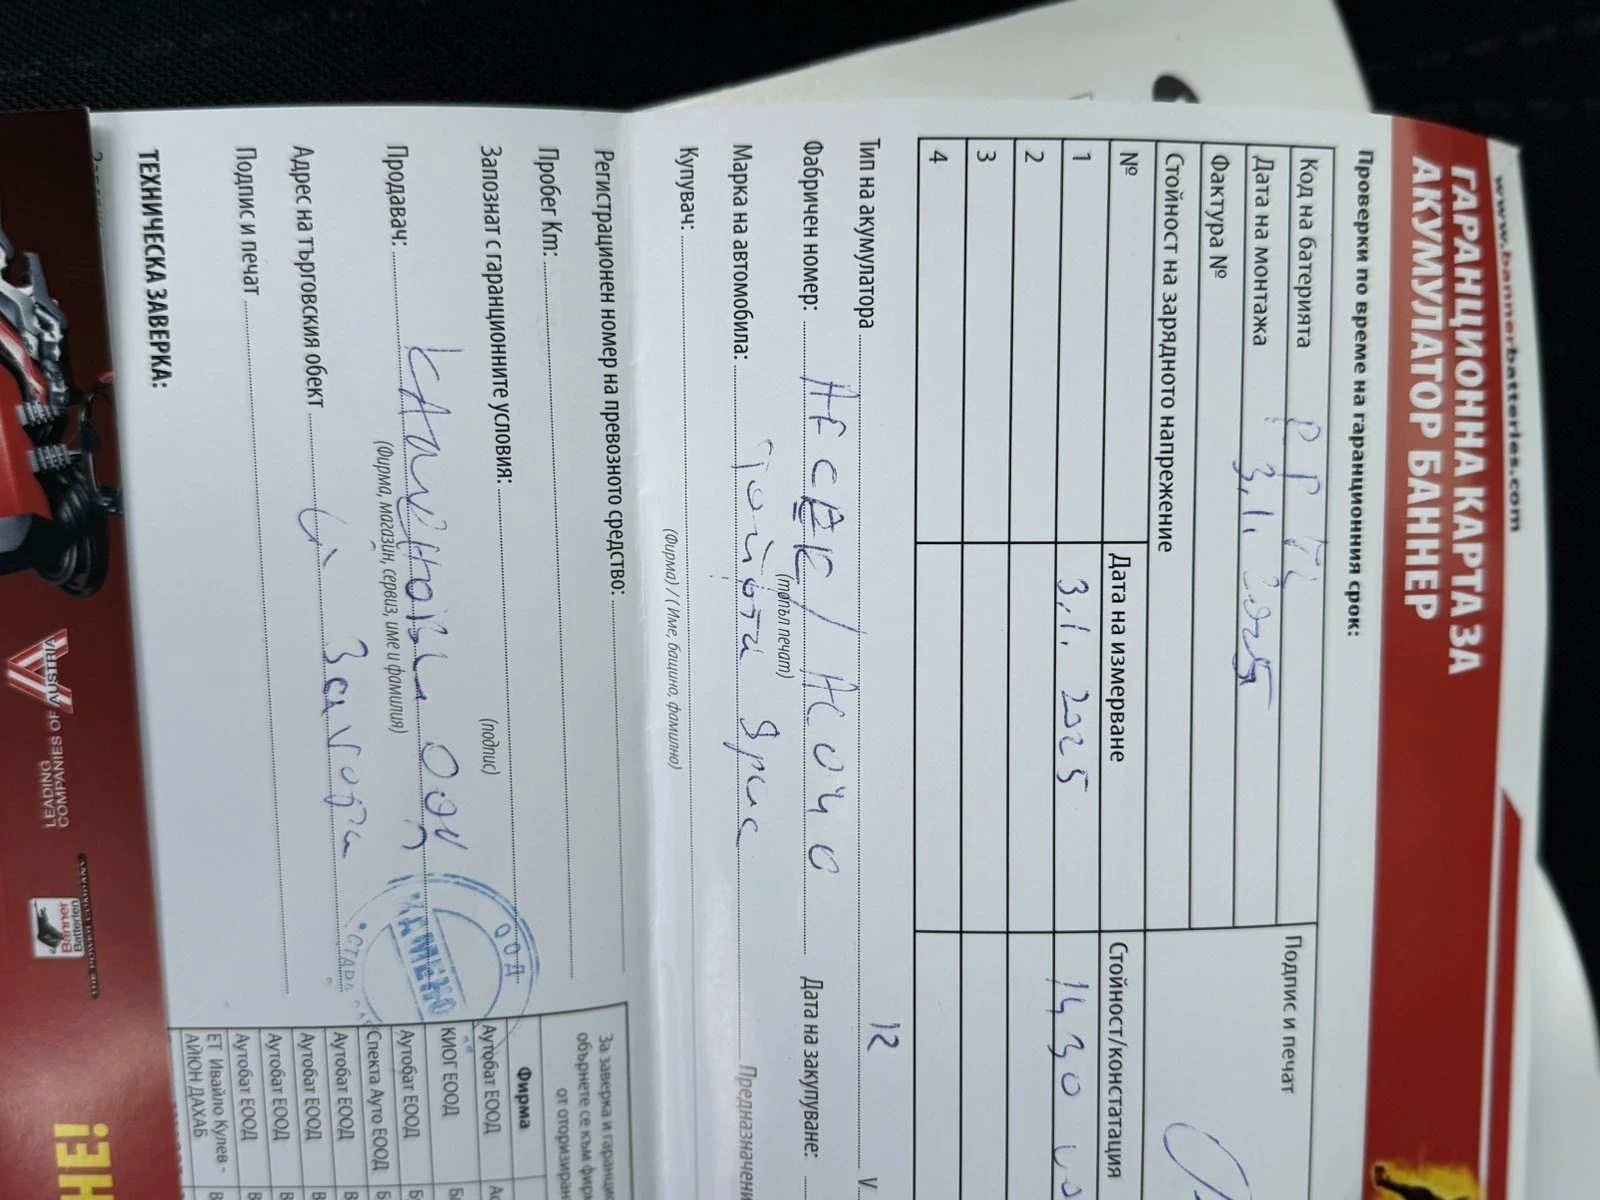 www.bannerbatteries.com
ГАРАНЦИОННА КАРТА ЗА
АКУМУЛАТОР БАННЕР
Проверки по време на гаранционния срок:
Код на батерията
Дата на монтажа 3.1.2025
Фактура №
Подпис и печат
Стойност на зарядното напрежение
№ Дата на измерване Стойност/констатация
1 3.1.2025 14 30
2
3
4
Тип на акумулатора 12 V
Фабричен номер:
(топъл печат)
Дата на закупуване:
Марка на автомобила: Тойота Ярис
Предназначени
Купувач:
(Фирма) / (Име, бащино, фамилно)
Регистрационен номер на превозното средство:
Пробег Km:
Запознат с гаранционните условия:
(подпис)
Продавач: ООД
(Фирма, магазин, сервиз, име и фамилия)
Адрес на търговския обект
Подпис и печат
ТЕХНИЧЕСКА ЗАВЕРКА:
ООД
За заверка и гаранцио
обърнете се към фирм
от оторизиран
Фирма
Аутобат ЕООД
КИОГ ЕООД
Аутобат ЕООД
Спекта Ауто ЕООД
Аутобат ЕООД
Аутобат ЕООД
Аутобат ЕООД
Аутобат ЕООД
ЕТ Ивайло Кулев -
АЙЮН ДАХАБ
LEADING
COMPANIES OF
AUSTRIA
Banner
Batterien
НЕ!